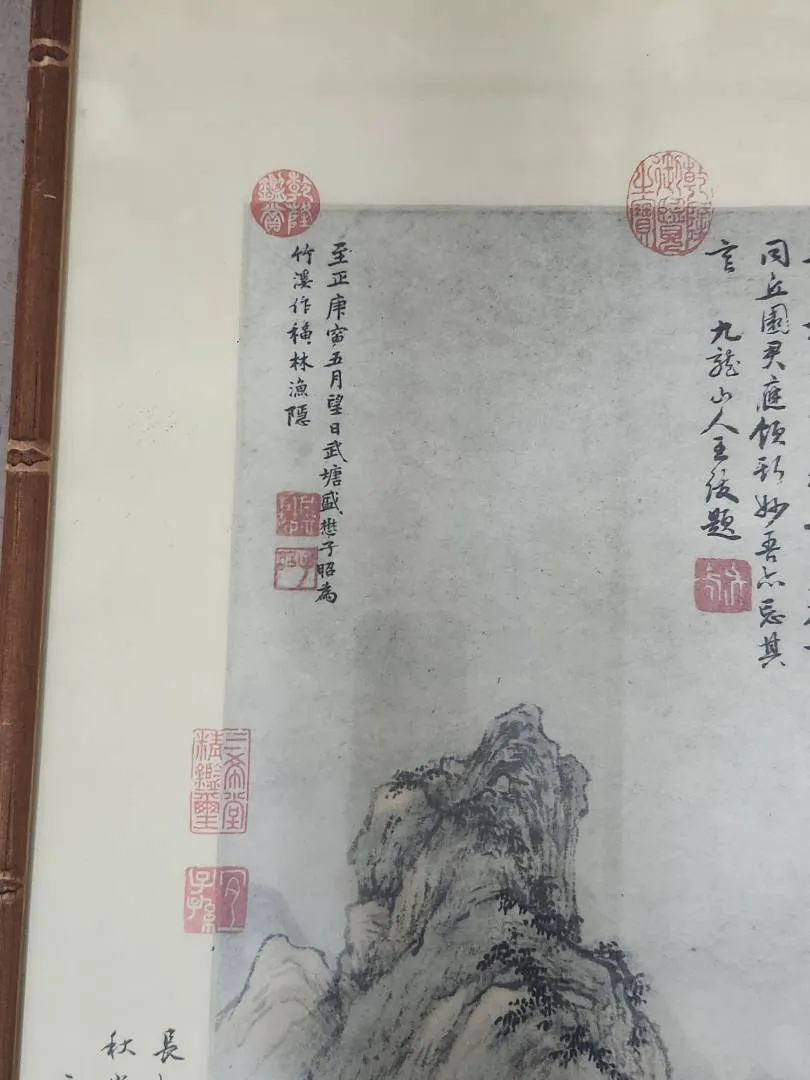 同丘園君應領斯妙吾亦忘其
言 九龍山人王紱題
至正庚寅五月望日武塘盛懋子昭為
竹溪作穐林漁隱
乾隆御覽之寶
乾隆鑑賞
子昭
三希堂精鑑璽
宜子孫
長
秋